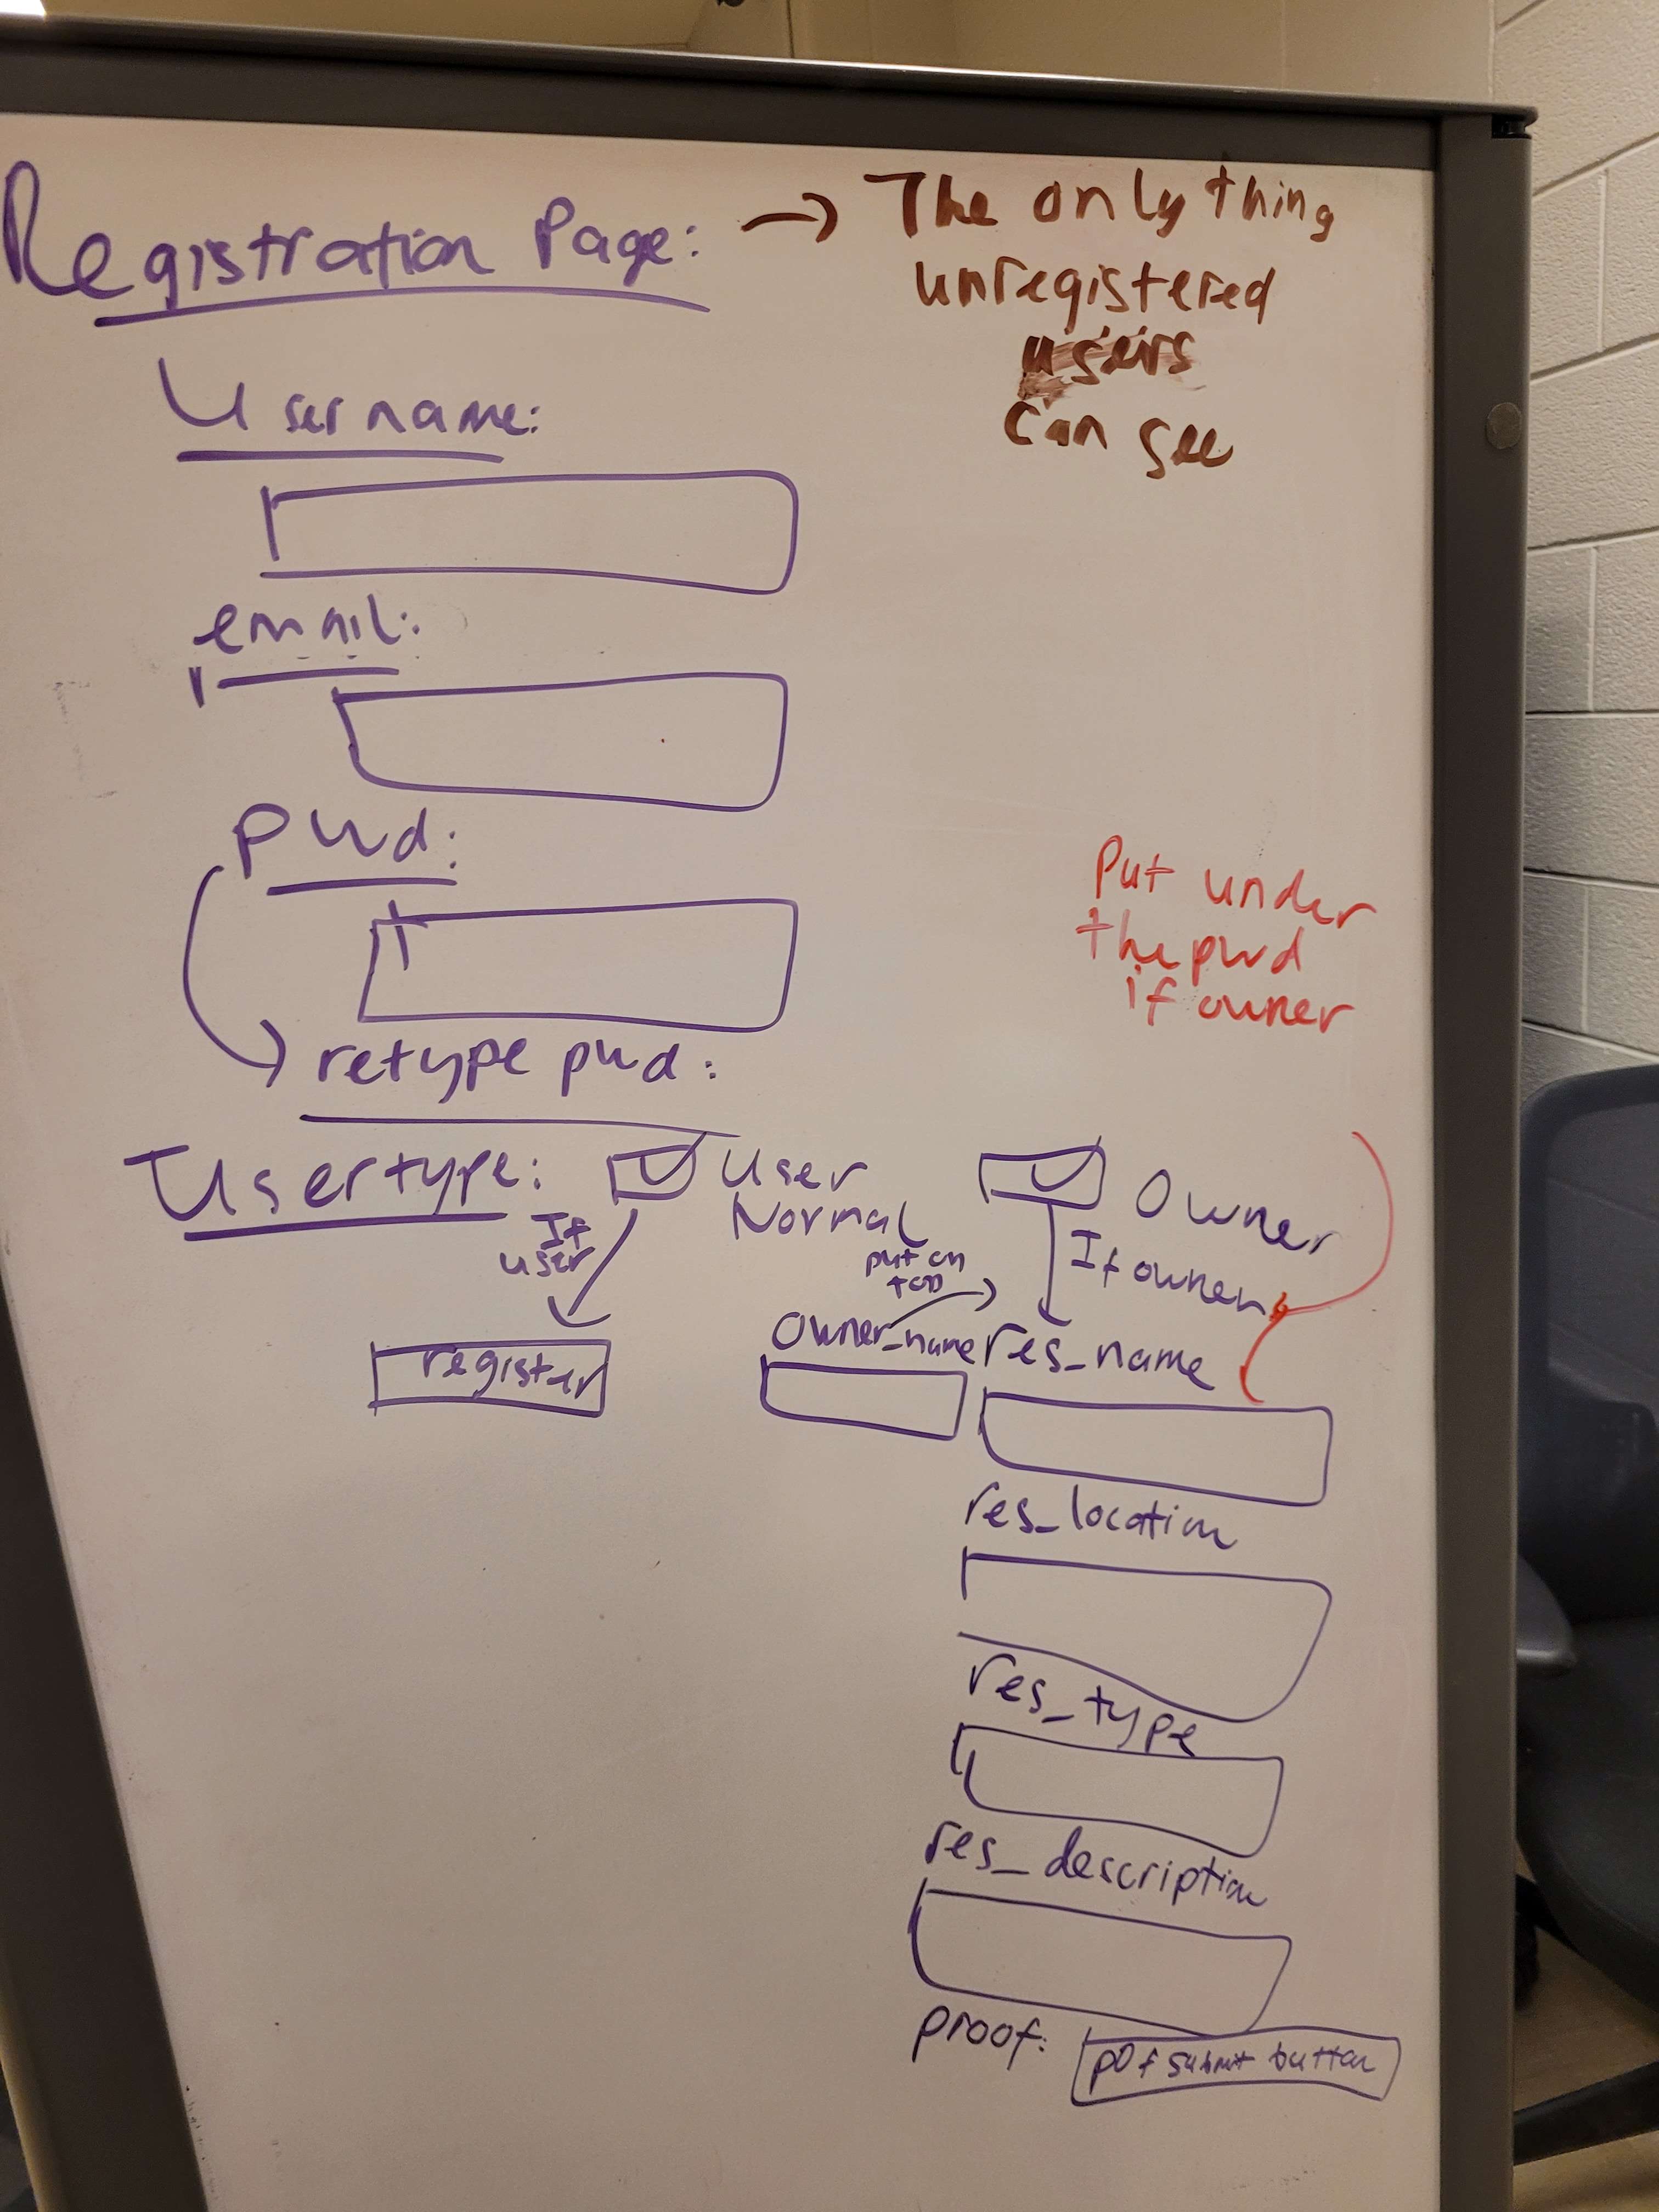 Registration Page: →
The only thing
unregistered
users
can see
Username:
email:
pwd:
retype pwd:
Put under
the pwd
if owner
Usertype:
User
Normal
Owner
If
user
register
If owner
put on
top
Owner_name
res_name
res_location
res_type
res_description
proof:
pdf submit button